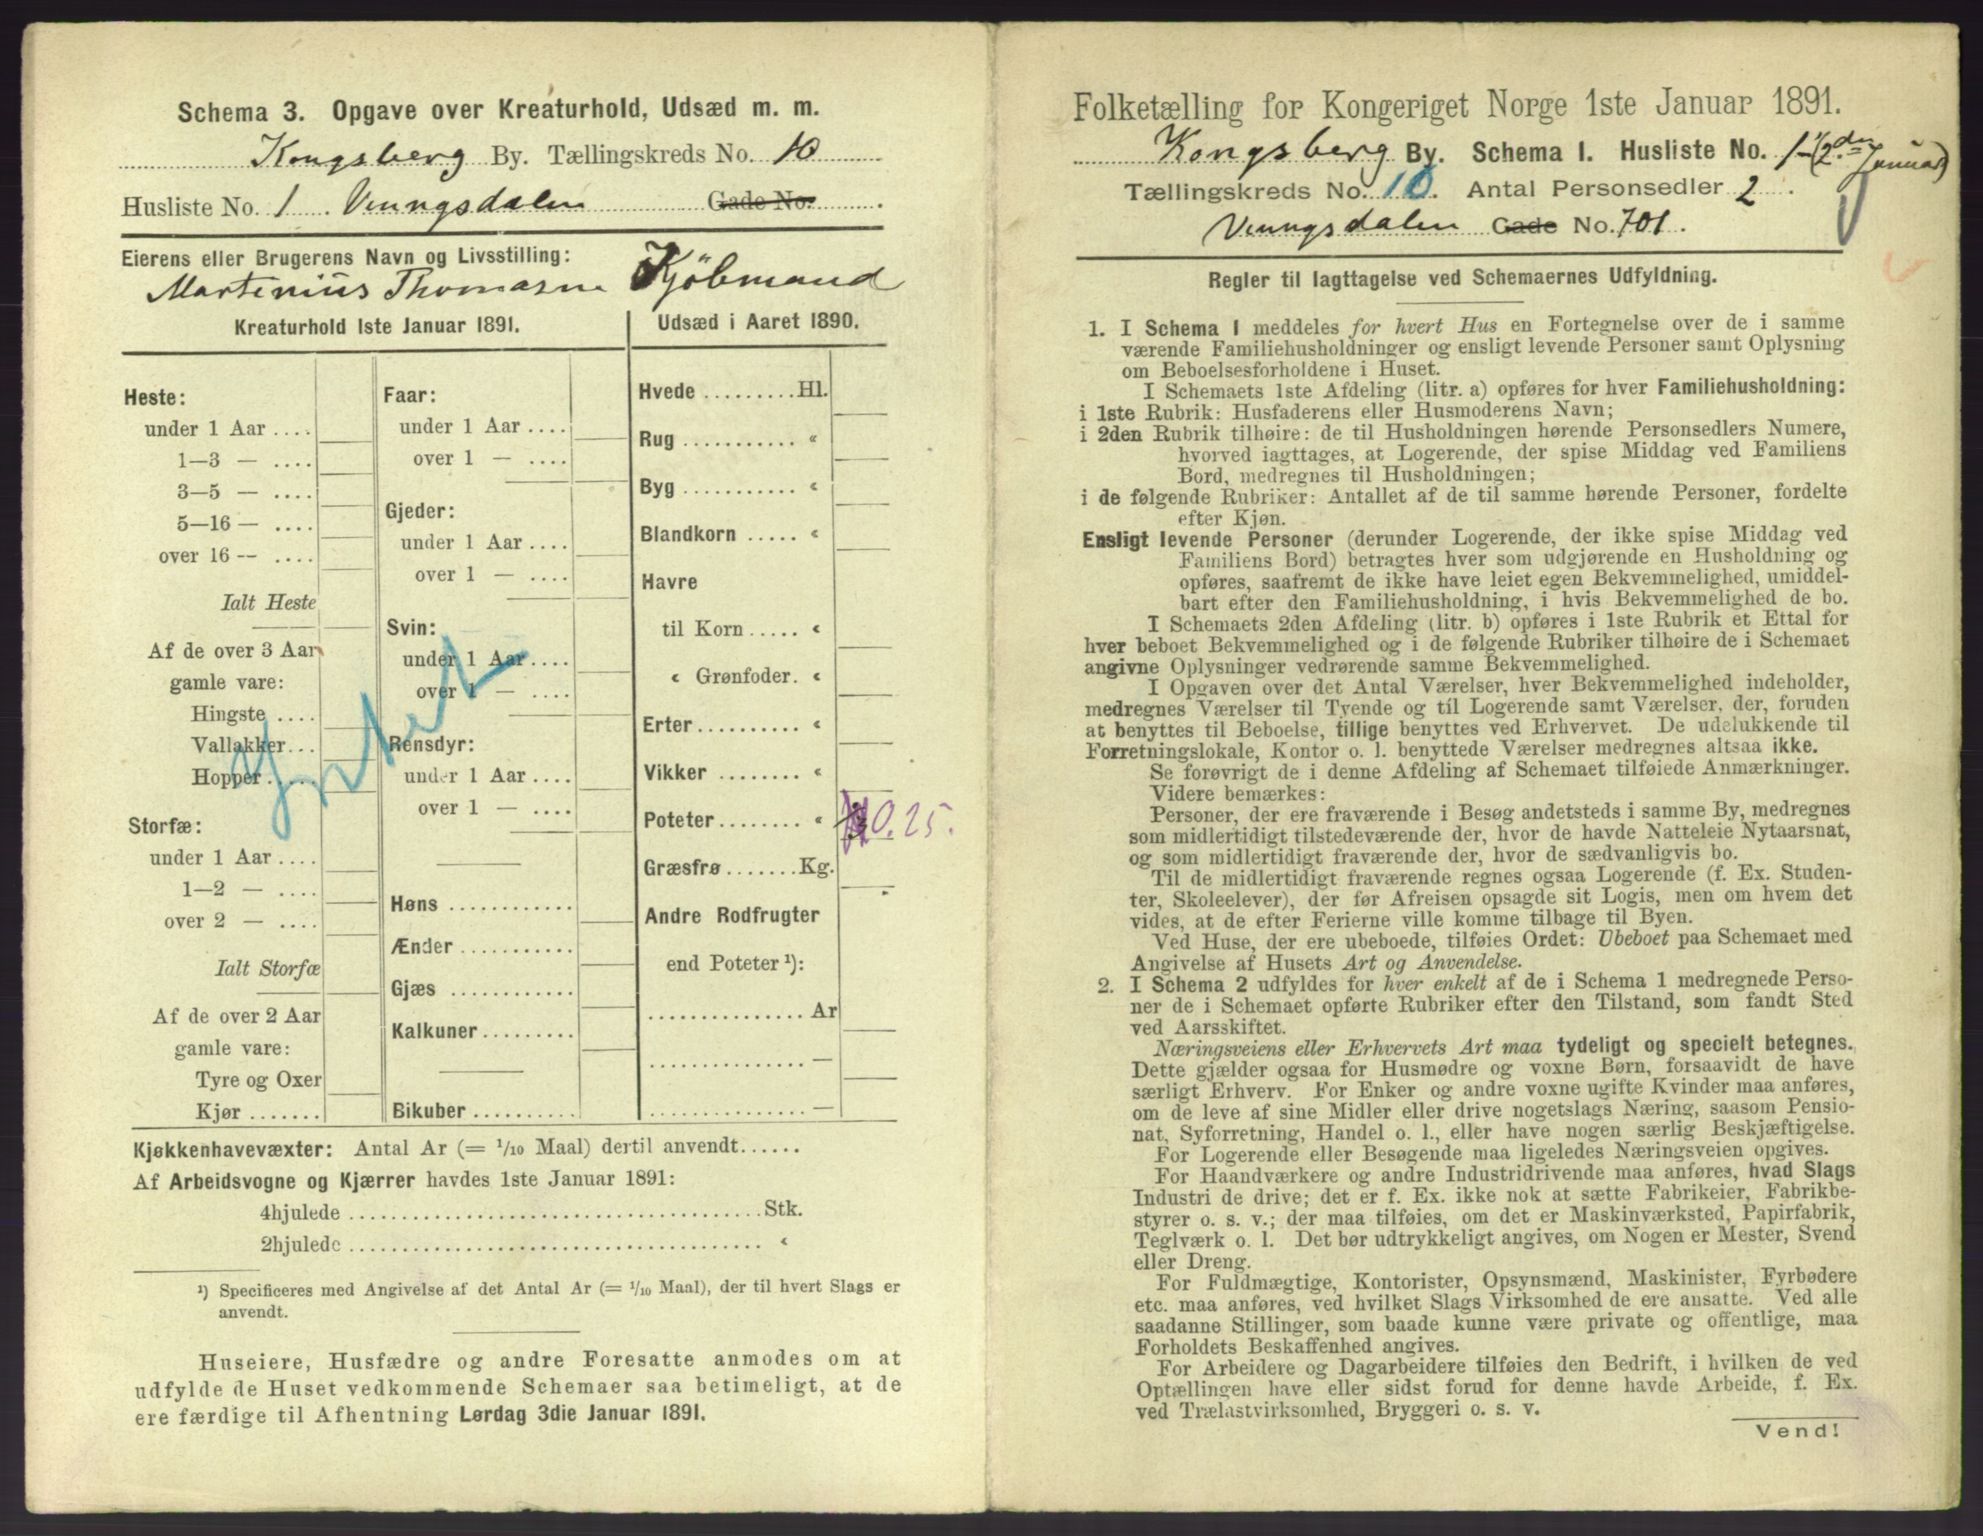 Schema 3. Opgave over Kreaturhold, Udsæd m. m.
Kongsberg By. Tællingskreds No. 10
Husliste No. 1 Venngsdalen Gade No.
Eierens eller Brugerens Navn og Livsstilling:
Martinius Thomasen Kjöbmand
Kreaturhold 1ste Januar 1891.
Heste:
under 1 Aar ....
1—3 — ....
3—5 — ....
5—16 — ....
over 16 -- ....
Ialt Heste
Af de over 3 Aar
gamle vare:
Hingste ....
Vallakker...
Hopper .....
Storfæ:
under 1 Aar ....
1—2 — ....
over 2 — ....
Ialt Storfæ
Af de over 2 Aar
gamle vare:
Tyre og Oxer
Kjør .......
Faar:
under 1 Aar ....
over 1 — ....
Gjeder:
under 1 Aar ....
over 1 — ....
Svin:
under 1 Aar ....
over 1 — ....
Rensdyr:
under 1 Aar ....
over 1 — ....
Høns ............
Ænder ...........
Gjæs ............
Kalkuner.........
Bikuber ..........
Intet
Udsæd i Aaret 1890.
Hvede .........Hl.
Rug ........... «
Byg ........... «
Blandkorn ..... «
Havre
til Korn ..... «
« Grønfoder. «
Erter .......... «
Vikker ........ «
Poteter........ « 0.25.
Græsfrø .......Kg.
Andre Rodfrugter
end Poteter ¹):
............... Ar
............... —
............... —
Kjøkkenhavevæxter: Antal Ar (= 1/10 Maal) dertil anvendt......
Af Arbeidsvogne og Kjærrer havdes 1ste Januar 1891:
4hjulede ........................................Stk.
2hjulede ........................................ «
¹) Specificeres med Angivelse af det Antal Ar (= 1/10 Maal), der til hvert Slags er
anvendt.
Huseiere, Husfædre og andre Foresatte anmodes om at
udfylde de Huset vedkommende Schemaer saa betimeligt, at de
ere færdige til Afhentning Lørdag 3die Januar 1891.
Folketælling for Kongeriget Norge 1ste Januar 1891.
Kongsberg By. Schema I. Husliste No. 1 (2den Januar)
Tællingskreds No. 10. Antal Personsedler 2.
Venngsdalen Gade No. 701.
Regler til Iagttagelse ved Schemaernes Udfyldning.
1. I Schema I meddeles for hvert Hus en Fortegnelse over de i samme
værende Familiehusholdninger og ensligt levende Personer samt Oplysning
om Beboelsesforholdene i Huset.
I Schemaets 1ste Afdeling (litr. a) opføres for hver Familiehusholdning:
i 1ste Rubrik: Husfaderens eller Husmoderens Navn;
i 2den Rubrik tilhøire: de til Husholdningen hørende Personsedlers Numere,
hvorved iagttages, at Logerende, der spise Middag ved Familiens
Bord, medregnes til Husholdningen;
i de følgende Rubriker: Antallet af de til samme hørende Personer, fordelte
efter Kjøn.
Ensligt levende Personer (derunder Logerende, der ikke spise Middag ved
Familiens Bord) betragtes hver som udgjørende en Husholdning og
opføres, saafremt de ikke have leiet egen Bekvemmelighed, umiddel-
bart efter den Familiehusholdning, i hvis Bekvemmelighed de bo.
I Schemaets 2den Afdeling (litr. b) opføres i 1ste Rubrik et Ettal for
hver beboet Bekvemmelighed og i de følgende Rubriker tilhøire de i Schemaet
angivne Oplysninger vedrørende samme Bekvemmelighed.
I Opgaven over det Antal Værelser, hver Bekvemmelighed indeholder,
medregnes Værelser til Tyende og til Logerende samt Værelser, der, foruden
at benyttes til Beboelse, tillige benyttes ved Erhvervet. De udelukkende til
Forretningslokale, Kontor o. l. benyttede Værelser medregnes altsaa ikke.
Se forøvrigt de i denne Afdeling af Schemaet tilføiede Anmærkninger.
Videre bemærkes:
Personer, der ere fraværende i Besøg andetsteds i samme By, medregnes
som midlertidigt tilstedeværende der, hvor de havde Natteleie Nytaarsnat,
og som midlertidigt fraværende der, hvor de sædvanligvis bo.
Til de midlertidigt fraværende regnes ogsaa Logerende (f. Ex. Studen-
ter, Skoleelever), der før Afreisen opsagde sit Logis, men om hvem det
vides, at de efter Ferierne ville komme tilbage til Byen.
Ved Huse, der ere ubeboede, tilføies Ordet: Ubeboet paa Schemaet med
Angivelse af Husets Art og Anvendelse.
2. I Schema 2 udfyldes for hver enkelt af de i Schema 1 medregnede Perso-
ner de i Schemaet opførte Rubriker efter den Tilstand, som fandt Sted
ved Aarsskiftet.
Næringsveiens eller Erhvervets Art maa tydeligt og specielt betegnes.
Dette gjælder ogsaa for Husmødre og voxne Børn, forsaavidt de have
særligt Erhverv. For Enker og andre voxne ugifte Kvinder maa anføres,
om de leve af sine Midler eller drive nogetslags Næring, saasom Pensio-
nat, Syforretning, Handel o. l., eller have nogen særlig Beskjæftigelse.
For Logerende eller Besøgende maa ligeledes Næringsveien opgives.
For Haandværkere og andre Industridrivende maa anføres, hvad Slags
Industri de drive; det er f. Ex. ikke nok at sætte Fabrikeier, Fabrikbe-
styrer o. s. v.; der maa tilføies, om det er Maskinværksted, Papirfabrik,
Teglværk o. l. Det bør udtrykkeligt angives, om Nogen er Mester, Svend
eller Dreng.
For Fuldmægtige, Kontorister, Opsynsmænd, Maskinister, Fyrbødere
etc. maa anføres, ved hvilket Slags Virksomhed de ere ansatte. Ved alle
saadanne Stillinger, som baade kunne være private og offentlige, maa
Forholdets Beskaffenhed angives.
For Arbeidere og Dagarbeidere tilføies den Bedrift, i hvilken de ved
Optællingen have eller sidst forud for denne havde Arbeide, f. Ex.
ved Trælastvirksomhed, Bryggeri o. s. v.
Vend!